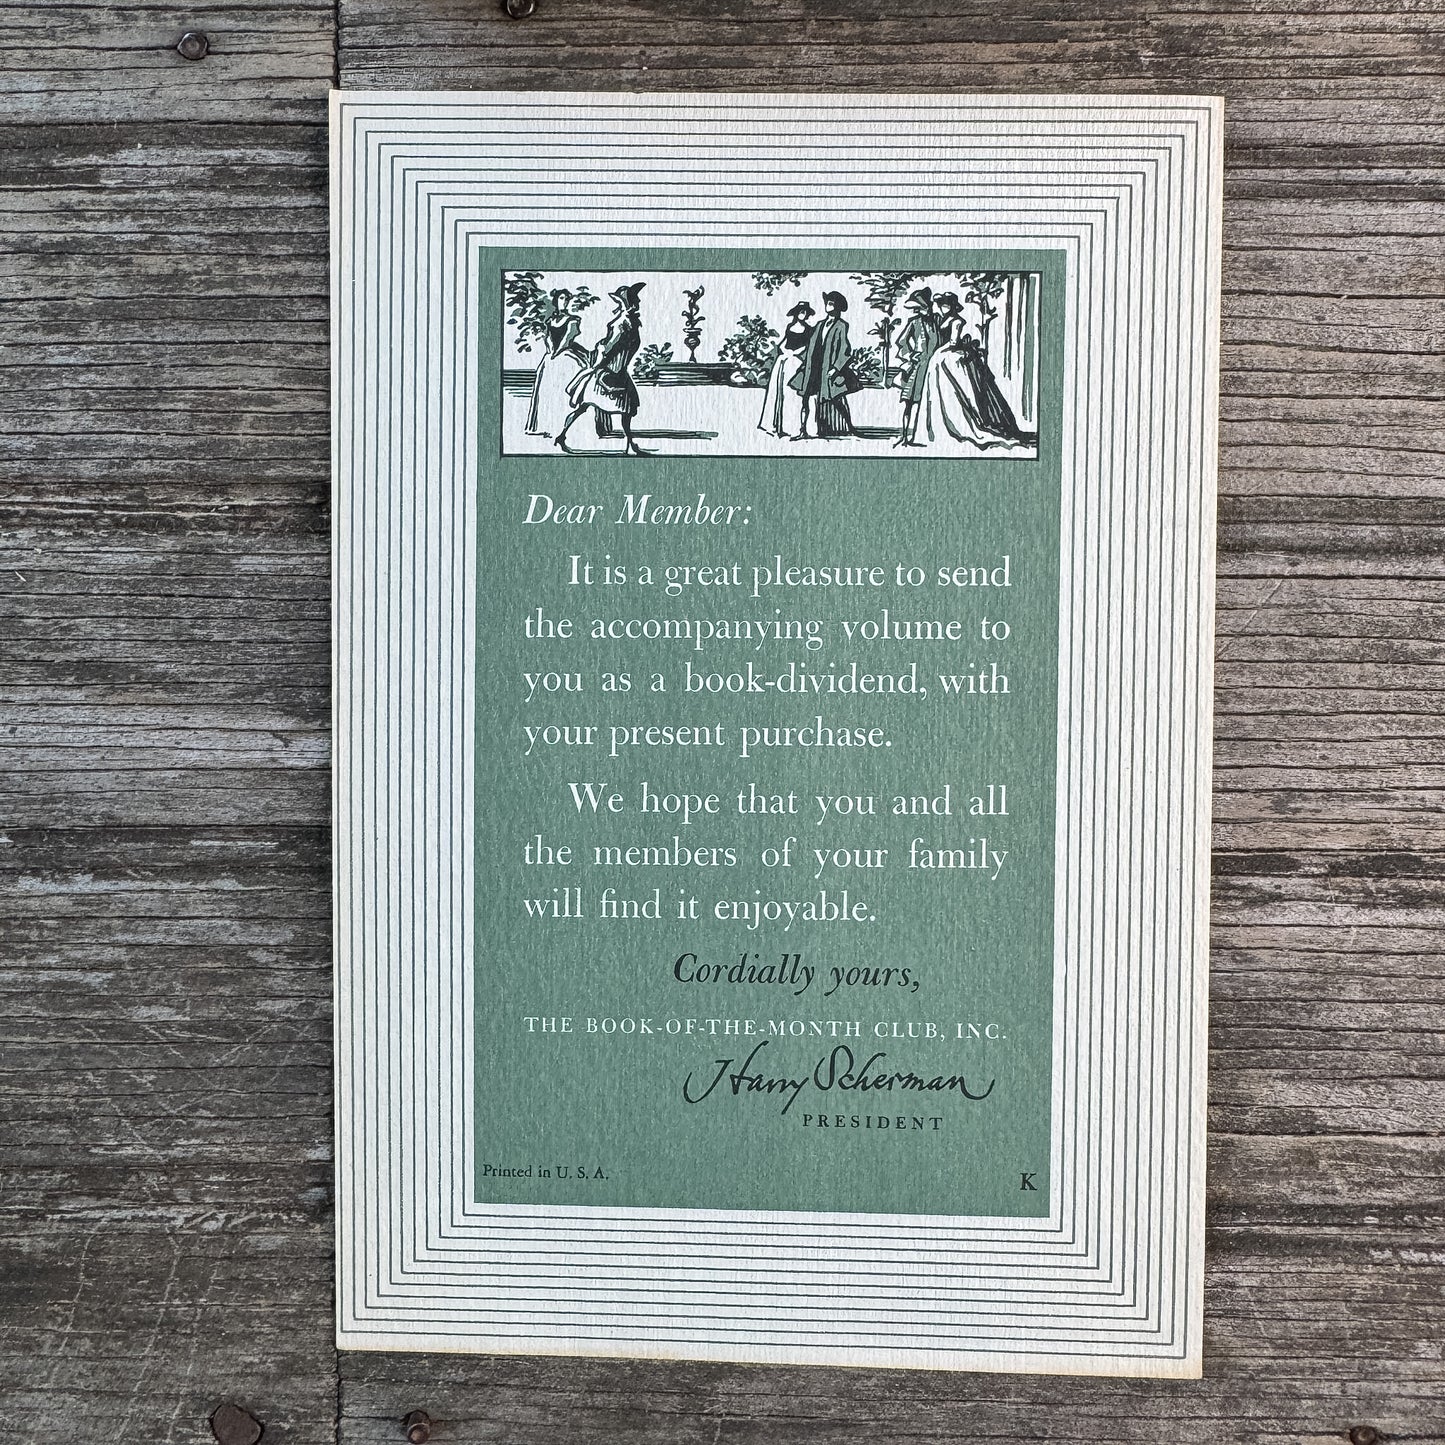 Dear Member:
It is a great pleasure to send
the accompanying volume to
you as a book-dividend, with
your present purchase.
We hope that you and all
the members of your family
will find it enjoyable.
Cordially yours,
THE BOOK-OF-THE-MONTH CLUB, INC.
Harry Scherman
PRESIDENT
Printed in U. S. A.
K